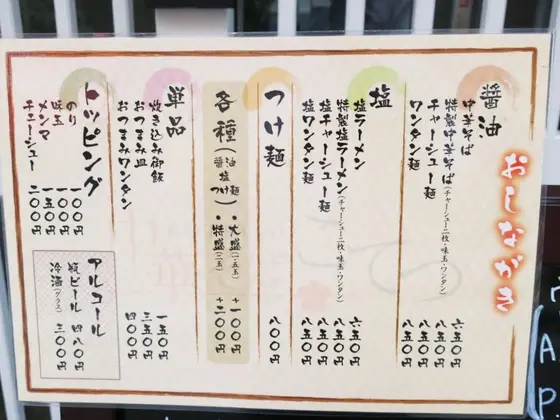 おしながき
醤油
中華そば 六五〇円
特製中華そば(チャーシュー二枚・味玉・ワンタン) 八五〇円
チャーシュー麺 八五〇円
ワンタン麺 八五〇円
塩
塩ラーメン 六五〇円
特製塩ラーメン(チャーシュー二枚・味玉・ワンタン) 八五〇円
塩チャーシュー麺 八五〇円
塩ワンタン麺 八五〇円
つけ麺 八〇〇円
各種(醤油 塩 つけ麺)
・大盛(一.五玉) +一〇〇円
・特盛(二玉) +二〇〇円
単品
炊き込み御飯 一五〇円
おつまみ皿 三五〇円
おつまみワンタン 四〇〇円
トッピング
のり 一〇〇円
味玉 一〇〇円
メンマ 一五〇円
チャーシュー 二〇〇円
アルコール
瓶ビール 四八〇円
冷酒(グラス) 三〇〇円